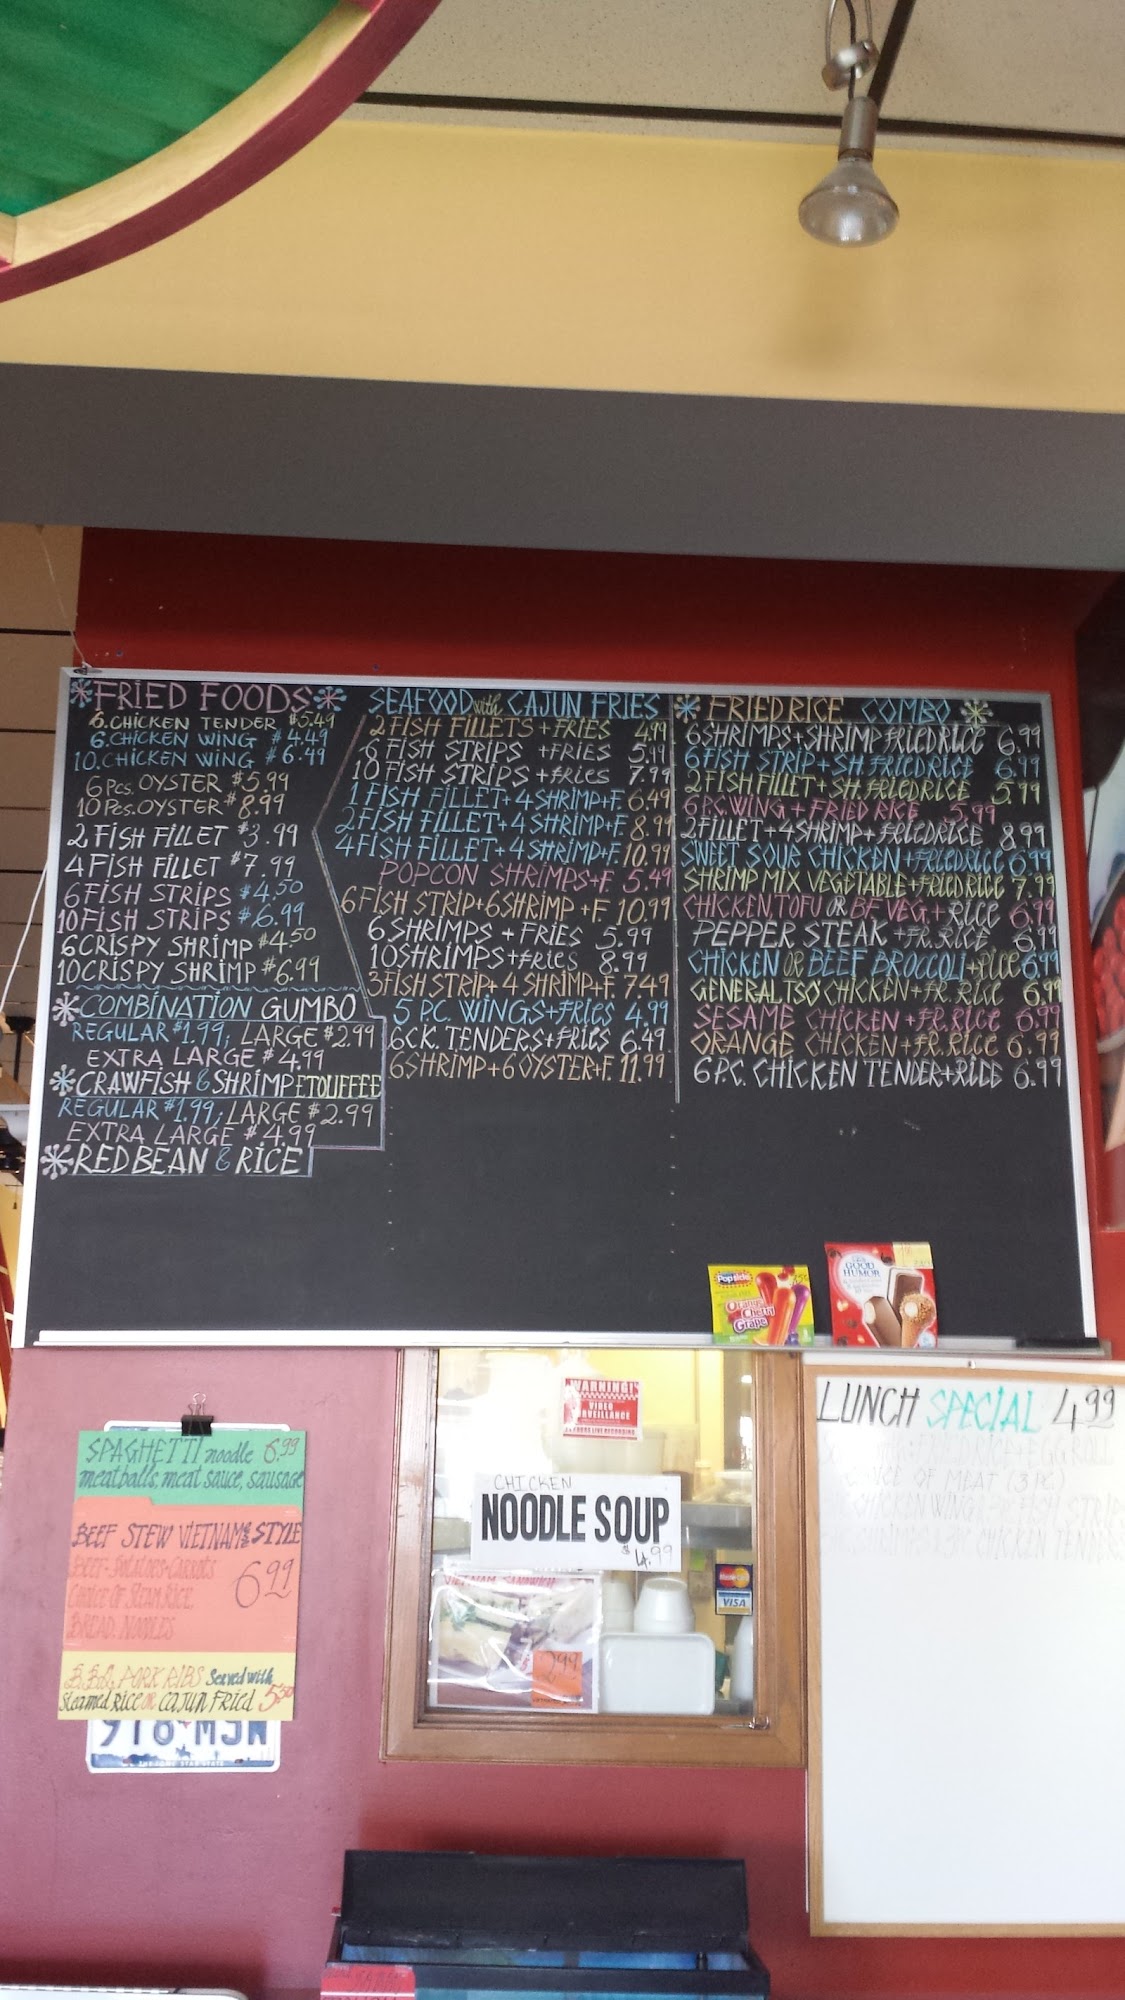 FRIED FOODS
6.CHICKEN TENDER $5.49
6.CHICKEN WING $4.49
10.CHICKEN WING $6.49
6 Pcs. OYSTER $5.99
10 Pcs. OYSTER $8.99
2 FISH FILLET $3.99
4 FISH FILLET $7.99
6 FISH STRIPS $4.50
10 FISH STRIPS $6.99
6 CRISPY SHRIMP $4.50
10 CRISPY SHRIMP $6.99
COMBINATION GUMBO
REGULAR $1.99, LARGE $2.99
EXTRA LARGE $4.99
CRAWFISH & SHRIMP ETOUFFEE
REGULAR $1.99; LARGE $2.99
EXTRA LARGE $4.99
RED BEAN & RICE
SEAFOOD with CAJUN FRIES
2 FISH FILLETS + FRIES 4.99
6 FISH STRIPS + FRIES 5.99
10 FISH STRIPS + FRIES 7.99
1 FISH FILLET + 4 SHRIMP + F. 6.49
2 FISH FILLET + 4 SHRIMP + F. 8.99
4 FISH FILLET + 4 SHRIMP + F. 10.99
POPCON SHRIMPS + F. 5.49
6 FISH STRIP + 6 SHRIMP + F. 10.99
6 SHRIMPS + FRIES 5.99
10 SHRIMPS + FRIES 8.99
3 FISH STRIP + 4 SHRIMP + F. 7.49
5 PC. WINGS + FRIES 4.99
6 CK. TENDERS + FRIES 6.49
6 SHRIMP + 6 OYSTER + F. 11.99
FRIED RICE COMBO
6 SHRIMPS + SHRIMP FRIED RICE 6.99
6 FISH STRIP + SH. FRIED RICE 6.99
2 FISH FILLET + SH. FRIED RICE 5.99
6 PC. WING + FRIED RICE 5.99
2 FILLET + 4 SHRIMP + FRIED RICE 8.99
SWEET SOUR CHICKEN + FRIED RICE 6.99
SHRIMP MIX VEGETABLE + FRIED RICE 7.99
CHICKEN, TOFU OR BF VEG. + RICE 6.99
PEPPER STEAK + FR. RICE 6.99
CHICKEN OR BEEF BROCCOLI + RICE 6.99
GENERAL TSO CHICKEN + FR. RICE 6.99
SESAME CHICKEN + FR. RICE 6.99
ORANGE CHICKEN + FR. RICE 6.99
6 P.C. CHICKEN TENDER + RICE 6.99
Popsicle
Orange
Cherry
Grape
GOOD HUMOR
SPAGHETTI noodle 6.99
meatballs, meat sauce, sausage
BEEF STEW VIETNAMESE STYLE
BEEF-POTATOES-CARROTS
CHOICE OF STEAM RICE
BREAD NOODLES
6.99
B.B.Q. PORK RIBS Served with
Steamed Rice OR CAJUN FRIED 5.50
978 MJN
WARNING!
VIDEO
SURVEILLANCE
CHICKEN
NOODLE SOUP
$4.99
VIETNAM SANDWICH
2.99
MasterCard
VISA
LUNCH SPECIAL 4.99
FRIED RICE + EGG ROLL
CHOICE OF MEAT (3 PC)
CHICKEN WING, FISH STRIPS
CHICKEN TENDERS